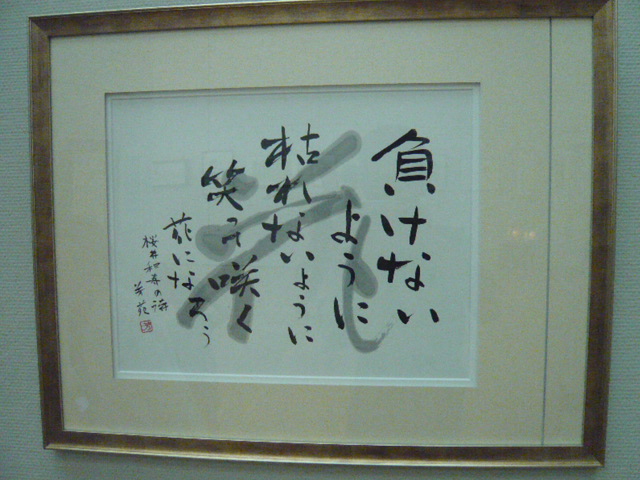 負けない
ように
枯れないように
笑って咲く
花になろう
桜井和寿の詩